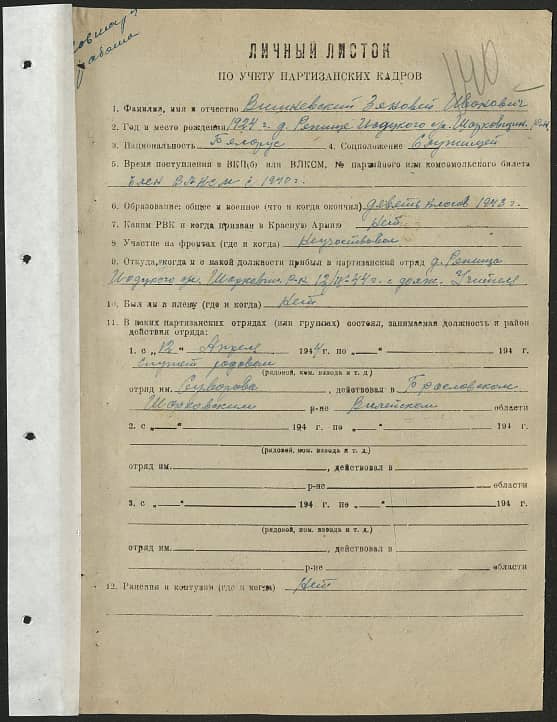 работа
140
ЛИЧНЫЙ ЛИСТОК
ПО УЧЕТУ ПАРТИЗАНСКИХ КАДРОВ
1. Фамилия, имя и отчество Вишневский Зеновей Иванович
2. Год и место рождения 1924 г. д. Репище Иодского с/с. Шарковщин. р-н
3. Национальность Белорус 4. Соцположение Служащей
5. Время поступления в ВКП(б) или ВЛКСМ, № партийного или комсомольского билета
Член ВЛКСМ с 1940 г.
6. Образование: общее и военное (что и когда окончил) девять класов 1943 г.
7. Каким РВК и когда призван в Красную Армию Нет
8. Участие на фронтах (где и когда) Неучаствовал
9. Откуда, когда и с какой должности прибыл в партизанский отряд д. Репища
Иодского с/с. Шарковщ. р-н 12/IV-44 г. с долж. Учителя
10. Был ли в плену (где и когда) Нет
11. В каких партизанских отрядах (или группах) состоял, занимаемая должность и район
действия отряда:
1. с „12“ Апреля 1944 г. по „ “ 194 г.
служит рядовым
(рядовой, ком. взвода и т. д.)
отряд им. Суворова, действовал в Браславском
Шарковском р-не Вилейском области
2. с „ “ 194 г. по „ “ 194 г.
(рядовой, ком. взвода и т. д.)
отряд им. , действовал в
р-не области
3. с „ “ 194 г. по „ “ 194 г.
(рядовой, ком. взвода и т. д.)
отряд им. , действовал в
р-не области
12. Ранения и контузии (где и когда) Нет